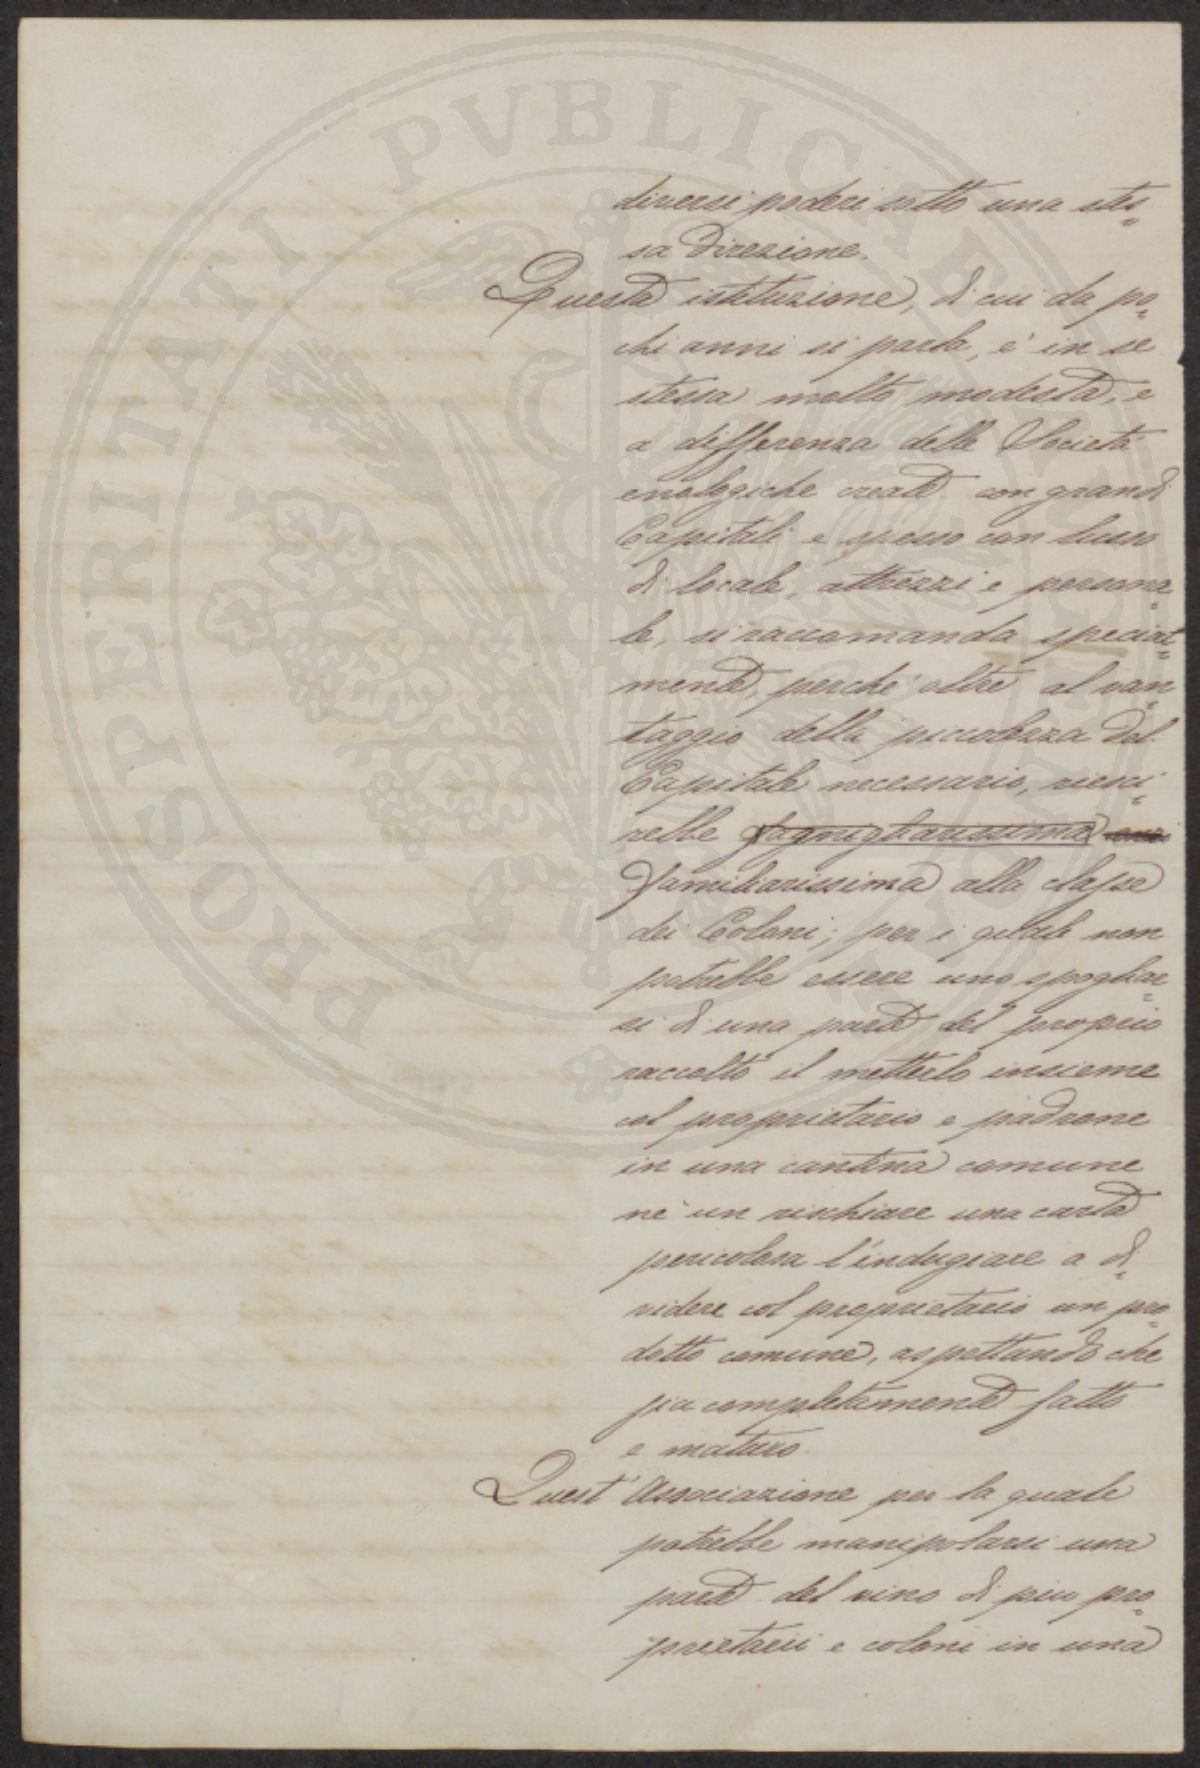 PROSPERITATI PVBLICAE AVGENDAE
diversi poderi sotto una stes=
sa Direzione.
Questa istituzione, di cui da po=
chi anni si parla, e' in se
stessa molto modesta, e
a differenza delle Società
enologiche create con grandi
Capitali e spesso con lusso
di locale, attrezzi e persona=
le, si raccomanda special=
mente, perche' oltre al van=
taggio della piccolezza del
Capitale necessario, riesci=
rebbe famigliarissima
familiarissima alla classe
dei Coloni; per i quali non
potrebbe essere uno spogliar=
si di una parte del proprio
raccolto il metterlo insieme
col proprietario e padrone
in una cantina comune
ne' un rischiare una carta
pericolosa l'indugiare a di=
videre col proprietario un pro=
dotto comune, aspettando che
sia completamente fatto
e maturo.
Quest' Associazione per la quale
potrebbe manipolarsi una
parte del vino di piu pro=
prietarii e coloni in una